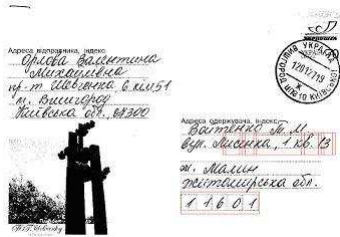 УКРПОШТА
Адреса відправника, індекс
Орлова Валентина
Михайлівна
пр-т Шевченка 6 км 51
м. Вишгород
Київська обл., 07300
УКРАЇНА
ВИШГОРОД
КИЇВСЬКОЇ
Адреса одержувача, індекс
Войтенко Т. М.
вул. Лисенка, 1 кв. 13
м. Малин
Житомирська обл.
11601